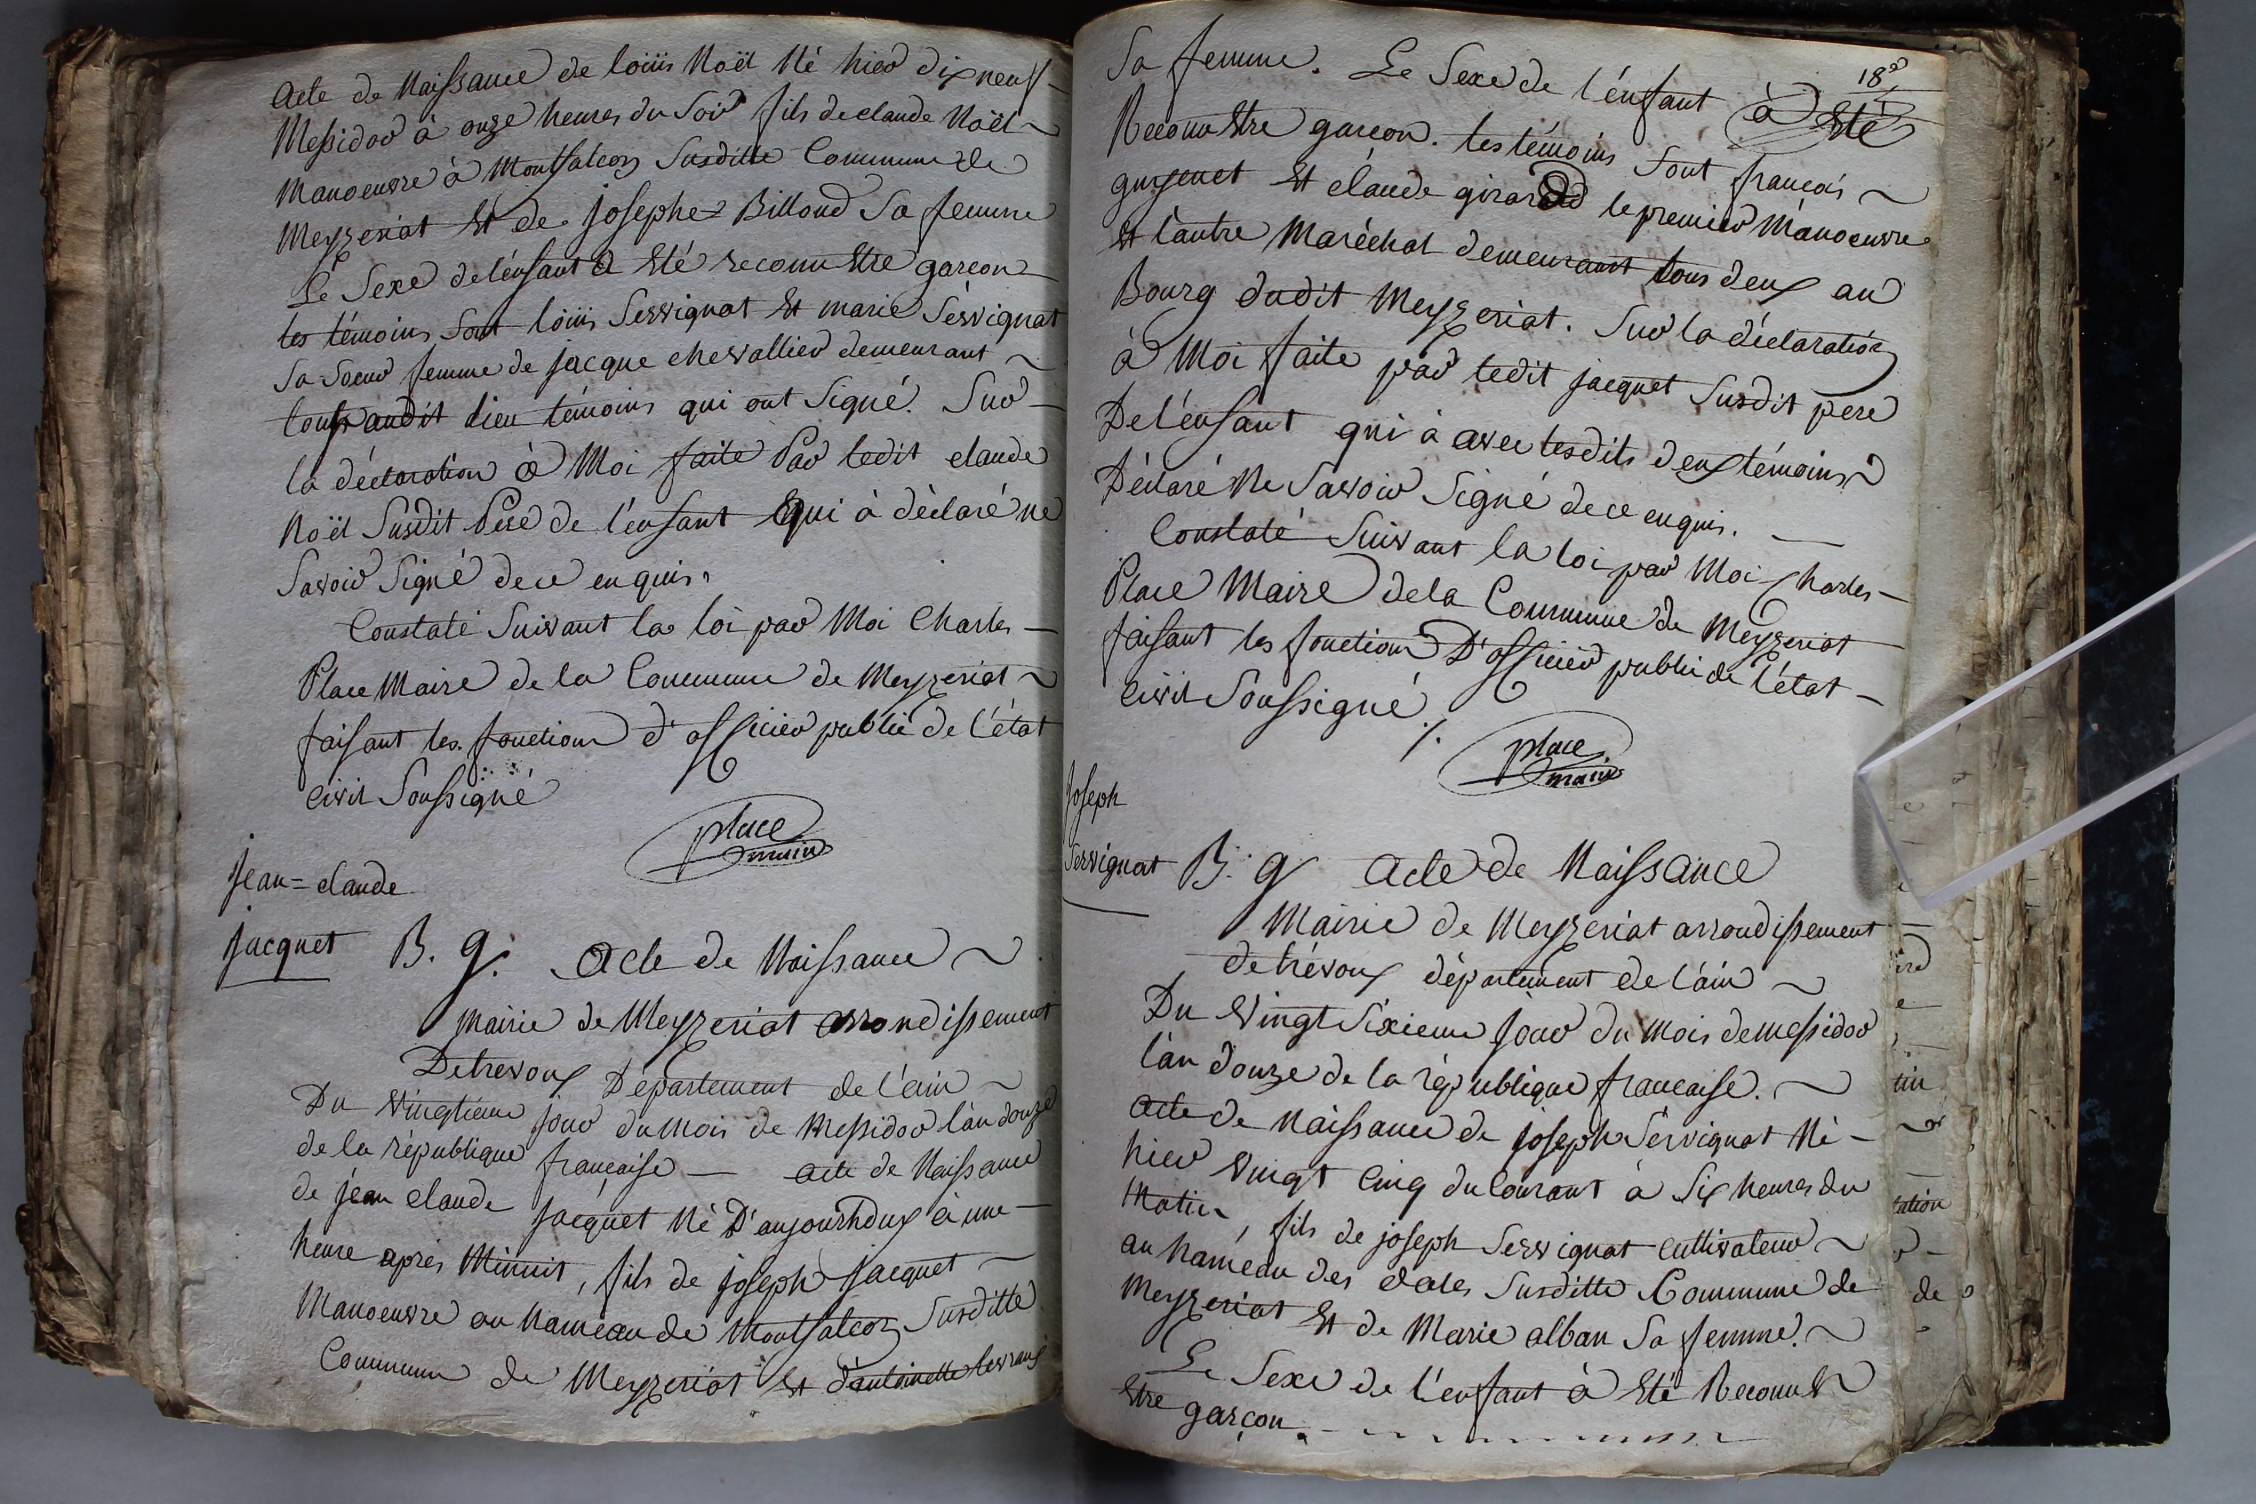 Acte de Naissance de loüis Noël Né hier dix neuf
Messidor à onze heures du Soir fils de claude Noël
Manoeuvre à Montfalcon Susditte Commune de
Meyzeriat Et de josephe Billoud Sa femme
Le Sexe de l'enfant a Eté reconu Etre garcon
les témoins Sont loüis Servignat Et marie Servignat
Sa Soeur femme de jacque chevallier demeurant
tous audit lieu témoins qui ont Signé. Sur
la déclaration à Moi faite Par ledit claude
Noël Susdit Pere de l'enfant Qui à déclaré ne
Savoir Signé de ce enquis.
Constaté Suivant la loi par Moi Charles
Place Maire de la Commune de Meyzeriat
faisant les fonctions d'officier public de l'état
Civil Soussigné
place
maire
Jean=claude
jacquet
B. g. Acte de Naissance
Mairie de Meyzeriat arrondissement
De trevoux Département de l'ain
Du Vingtieme jour du Mois de Messidor l'an douze
de la république française — acte de Naissance
de jean claude jacquet Né D'aujourhdux à une
heure après Minuit, fils de joseph jacquet
Manoeuvre au hameau de Montfalcon Susditte
Commune de Meyzeriat Et d'antoinette levrau
18
Sa femme. Le Sexe de l'enfant à Eté
Reconu Etre garcon. les témoins Sont francois
guyenet Et claude girard le premier Manoeuvre
Et l'autre Maréchal demeurant tous deux au
Bourg dudit Meyzeriat. Sur la déclaration
à Moi faite par ledit jacquet Susdit pere
De l'enfant qui à avec lesdits deux témoins
Déclaré Ne Savoir Signé de ce enquis.
Constaté Suivant la loi par Moi Charles
Place Maire de la Commune de Meyzeriat
faisant les fonctions D'officier public de l'état
Civil Soussigné ./.
place
maire
Joseph
Servignat
B. g. Acte de Naissance
Mairie de Meyzeriat arrondissement
de trévoux département de l'ain
Du Vingt Sixieme Jour du Mois de Messidor
l'an douze de la république francaise.
Acte de Naissance de joseph Servignat Né
hier Vingt Cinq du Courant à Six heures du
Matin, fils de joseph Servignat Cultivateur
au hameau des Susditte Commune de
Meyzeriat Et de Marie alban Sa femme.
Le Sexe de l'enfant à Eté Reconu
Etre garçon.